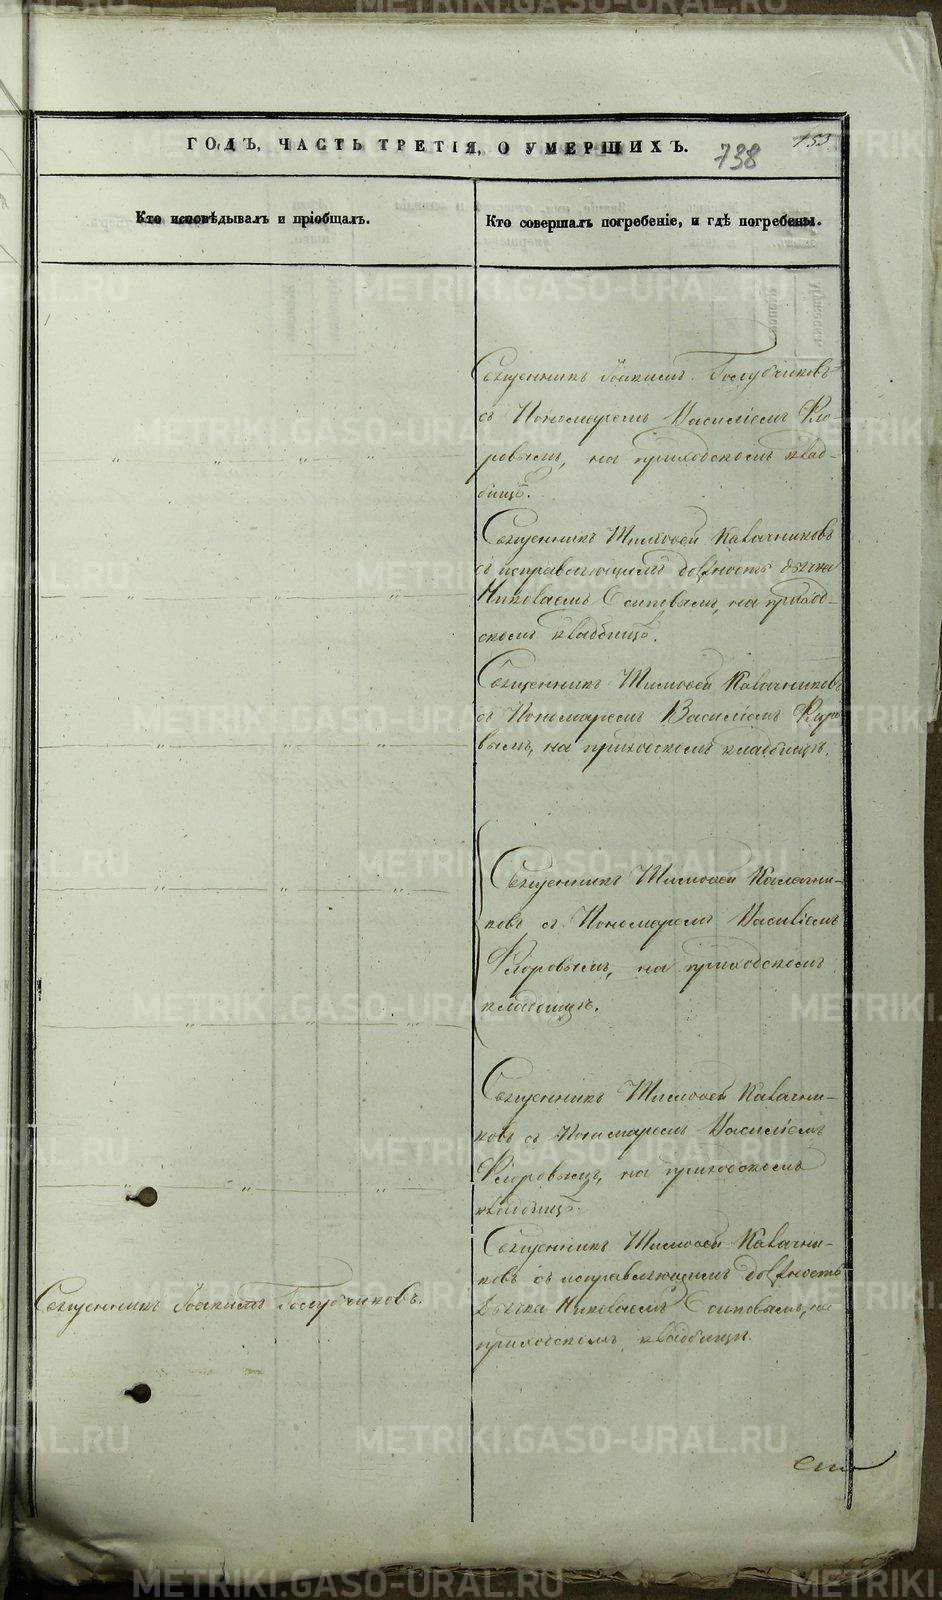 ГОДЪ, ЧАСТЬ ТРЕТІЯ, О УМЕРШИХЪ.
738
153
Кто исповѣдывалъ и пріобщалъ.
Кто совершалъ погребеніе, и гдѣ погребены.
Священникъ Іоакимъ Голубчиковъ
съ Пономаремъ Василіемъ Фло-
ровымъ, на приходскомъ клад-
бищѣ.
Священникъ Тимоѳей Калачниковъ
съ исправляющимъ должность дьячка
Николаемъ Осиповымъ, на приход-
скомъ кладбищѣ.
Священникъ Тимоѳей Калачниковъ
съ Пономаремъ Василіемъ Флоро-
вымъ, на приходскомъ кладбищѣ.
Священникъ Тимоѳей Калачни-
ковъ съ Пономаремъ Василіемъ
Флоровымъ, на приходскомъ
кладбищѣ.
Священникъ Тимоѳей Калачни-
ковъ съ Пономаремъ Василіемъ
Флоровымъ, на приходскомъ
кладбищѣ.
Священникъ Іоакимъ Голубчиковъ.
Священникъ Тимоѳей Калачни-
ковъ съ исправляющимъ должность
дьячка Николаемъ Осиповымъ, на
приходскомъ кладбищѣ.
METRIKI.GASO-URAL.RU